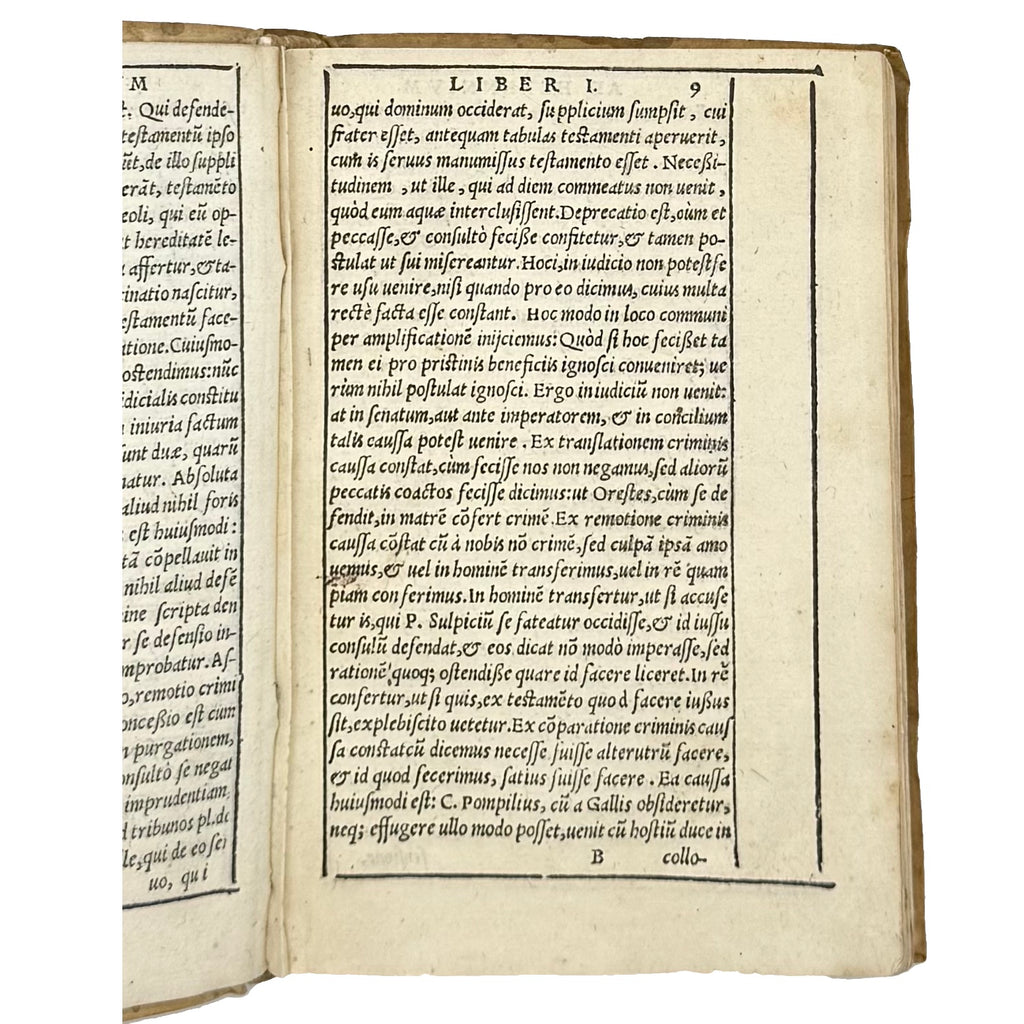 M
Qui defende-
testamentū ipso
de illo suppli
testamēto
eoli, qui eū op-
hereditatē le-
affertur, & ta-
nascitur,
face-
Cuiusmo-
ostendimus: nūc
constitu
iniuria factum
duæ, quarū
Absoluta
aliud nihil foris
est huiusmodi:
cōpellauit in
nihil aliud defē
scripta den
se defensio in-
As-
remotio crimi
est cum
purgationem,
se negat
imprudentiam,
tribunos pl. de
qui de eo ser
uo, qui
LIBER I. 9
uo, qui dominum occiderat, supplicium sumpsit, cui
frater esset, antequam tabulas testamenti aperuerit,
cum is seruus manumissus testamento esset. Neceßi-
tudinem, ut ille, qui ad diem commeatus non uenit,
quòd eum aquæ interclusissent. Deprecatio est, cùm et
peccasse, & consultò fecisse confitetur, & tamen po-
stulat ut sui misereantur. Hoc i, in iudicio non potest fe
re usu uenire, nisi quando pro eo dicimus, cuius multa
rectè facta esse constant. Hoc modo in loco communi
per amplificationē inijciemus: Quòd si hoc fecißet ta
men ei pro pristinis beneficiis ignosci conueniret; ue
rùm nihil postulat ignosci. Ergo in iudiciū non uenit:
at in senatum, aut ante imperatorem, & in concilium
talis caussa potest uenire. Ex translationem criminis
caussa constat, cùm fecisse nos non negamus, sed aliorū
peccatis coactos fecisse dicimus: ut Orestes, cùm se de
fendit, in matrē cōfert crimē. Ex remotione criminis
caussa cōstat cū à nobis nō crimē, sed culpā ipsā amo
uemus, & uel in hominē transferimus, uel in rē quam
piam conferimus. In hominē transfertur, ut si accuse
tur is, qui P. Sulpiciū se fateatur occidisse, & id iussu
consulū defendat, & eos dicat nō modò imperasse, sed
rationē quoq; ostendiße quare id facere liceret. In rē
confertur, ut si quis, ex testamēto quod facere iußus
sit, ex plebiscito uetetur. Ex cōparatione criminis caus
sa constat cū dicemus necesse fuisse alterutrū facere,
& id quod fecerimus, satius fuisse facere. Ea caussa
huiusmodi est: C. Pompilius, cū a Gallis obsideretur,
neq; effugere ullo modo posset, uenit cū hostiū duce in
B collo-